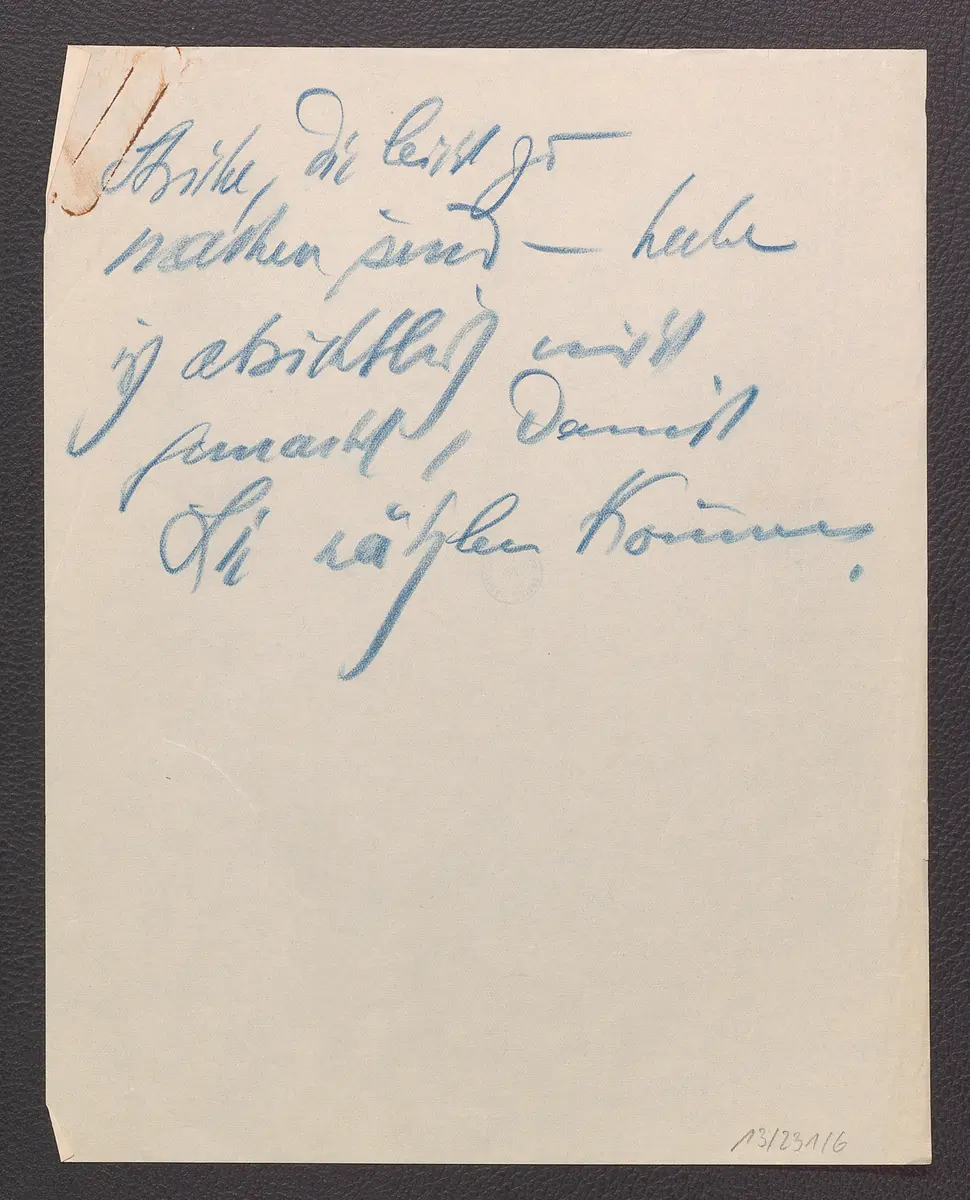 Striche, die leicht zu
machen sind — habe
ich absichtlich nicht
gemacht, damit
Sie wählen können.
13/231/6